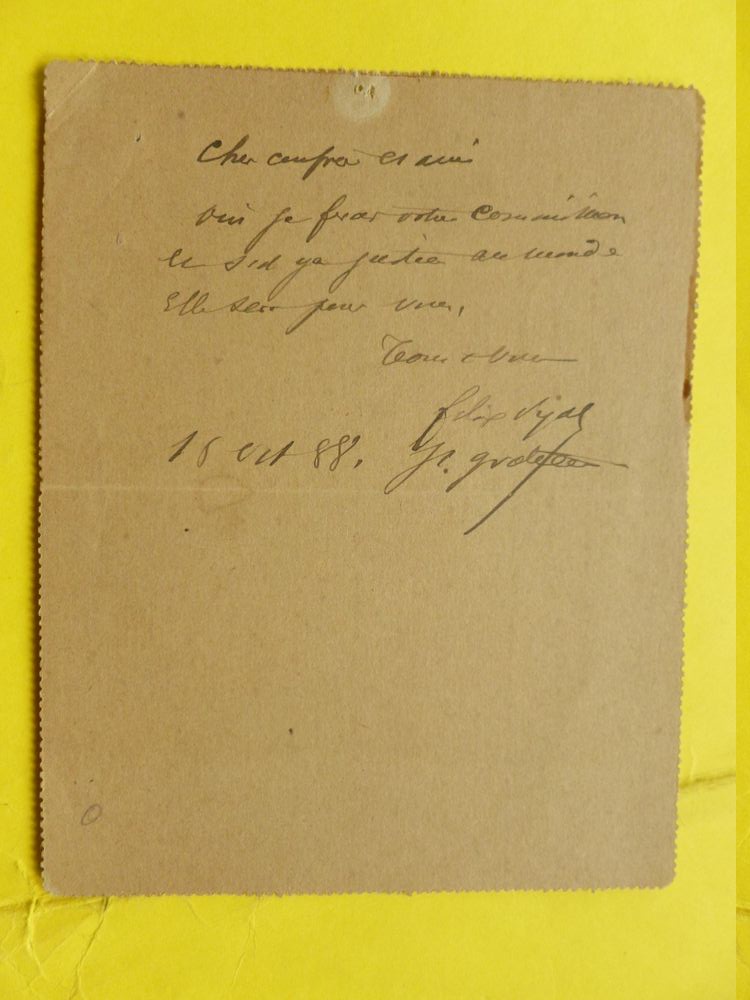 Cher confrère et ami
Oui je ferai votre commission
et s'il y a justice au monde
Elle sera pour vous.
Tout à vous
Felix
15 oct 88.